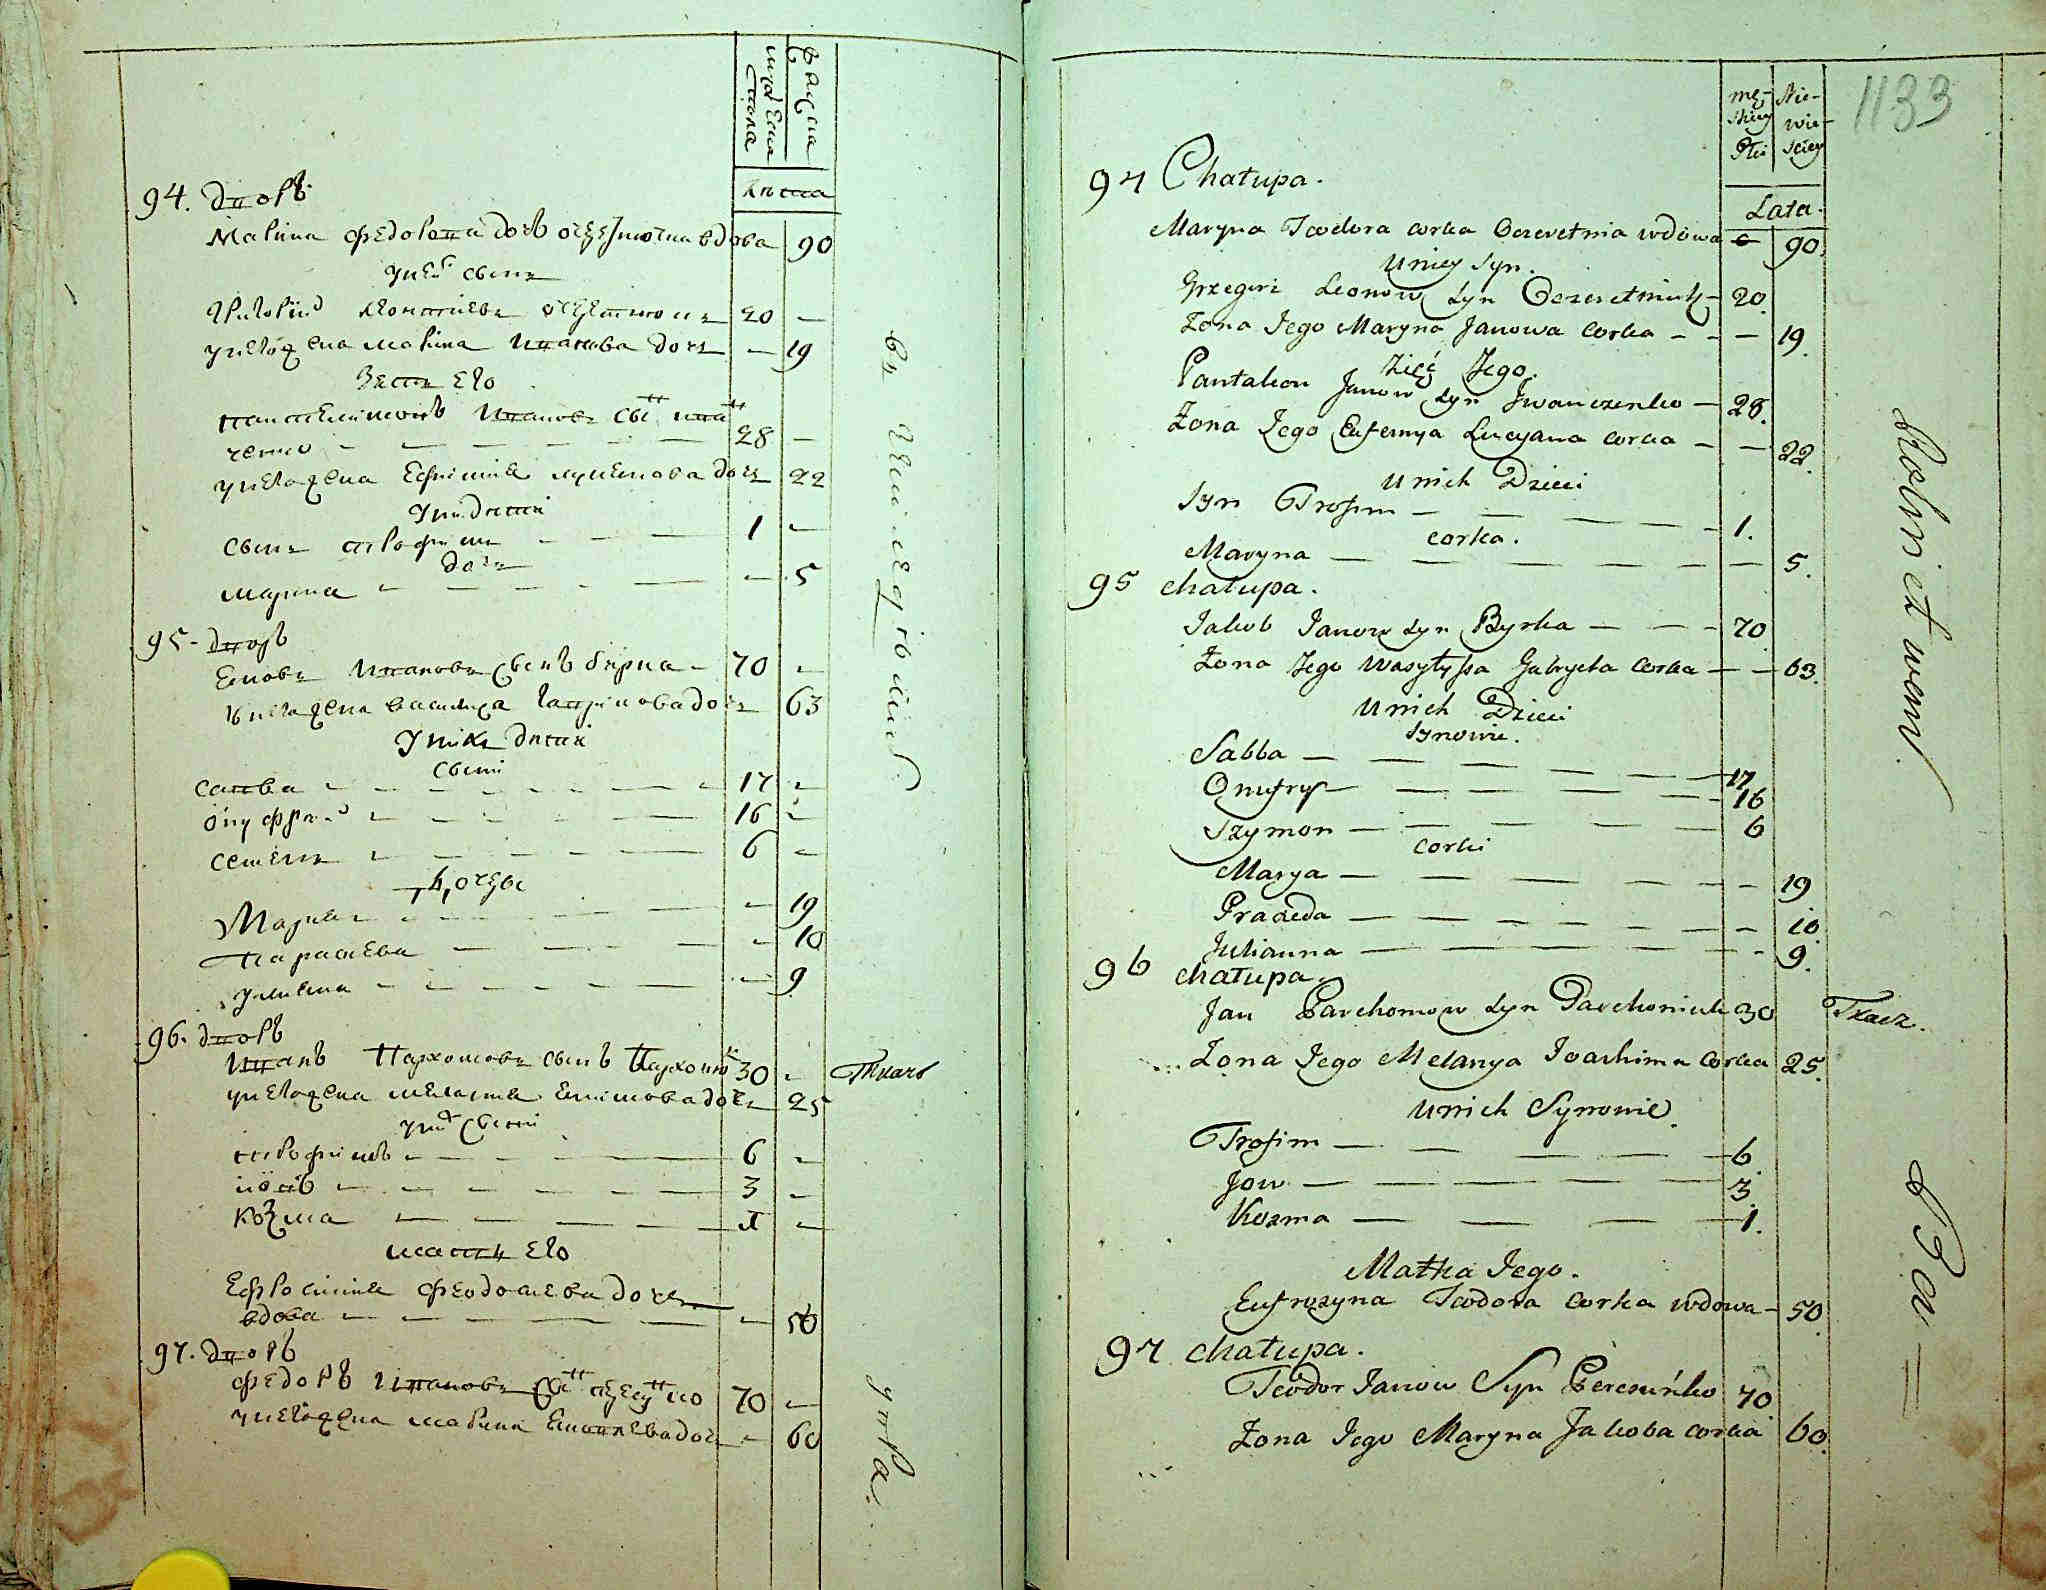 мужеска
пола
женска
лѣта
94. Дворъ
Марина Федорова дочь вдова 90
у ней сынъ
Григорій Леонтіевъ 20 —
у него жена Марина Иванова дочь — 19
Зять его
Пантелимонъ Ивановъ сынъ Иван
ченко — — — 28 —
у него жена Ефимия Лукиянова дочь 22
у них дети
сынъ Трофимъ — — — 1 —
дочь
Марина — — — — 5
95. Дворъ
Яковъ Ивановъ сынъ Бирка — 70 —
у него жена Василиса Гаврилова дочь 63
у нихъ дети
сыны
Савва — — — 17 —
Онуфрий — — — 16 —
Семенъ — — — 6 —
дочери
Мария — — — 19
Параскева — — — 10
Улияна — — — 9
96. Дворъ
Иванъ Пархомовъ сынъ Пархоню 30 — Ткачъ
у него жена Мелания Екимова дочь 25
у них сыны
Трофимъ — — — 6 —
Иовъ — — — 3 —
Козма — — — 1 —
мать его
Ефросиния Феодосиева дочь
вдова — — — — 50
97. Дворъ
Федоръ Ивановъ сынъ 70 —
у него жена Марина Яковлева дочь — 60
1133
mę-
skiey
Płci
Nie-
wie-
sciey
Lata.
94 Chałupa.
Maryna Teodora corka Oczeretnia wdowa — 90.
U niey Syn.
Grzegorz Leonow Syn Oczeretniuk — 20.
Żona Jego Maryna Janowa corka — — — 19.
Zięć Jego.
Pantalion Janow Syn Iwanczenko — 28.
Żona Jego Eufemya Lucyana corka — — 22.
U nich Dzieci
Syn Trofim — — — — 1.
corka.
Maryna — — — — — 5.
95 chałupa.
Jakob Janow Syn Byrka — — — 70
Żona Jego Wasylyssa Gabryela corka — — 63.
U nich Dzieci
Synowie.
Sabba — — — — 17
Onufry — — — — 16
Szymon — — — — 6
Corki
Marya — — — — 19
Praxeda — — — — 10
Julianna — — — — 9.
96 chałupa.
Jan Parchomow Syn Parchoniuk 30 Tkacz.
Żona Jego Melanya Joachima corka 25.
U nich Synowie.
Trofim — — — — 6.
Jow — — — — 3.
Kozma — — — — 1.
Matka Jego.
Eufrozyna Teodora corka wdowa — 50.
97 chałupa.
Teodor Janow Syn 70
Żona Jego Maryna Jakoba corka 60.